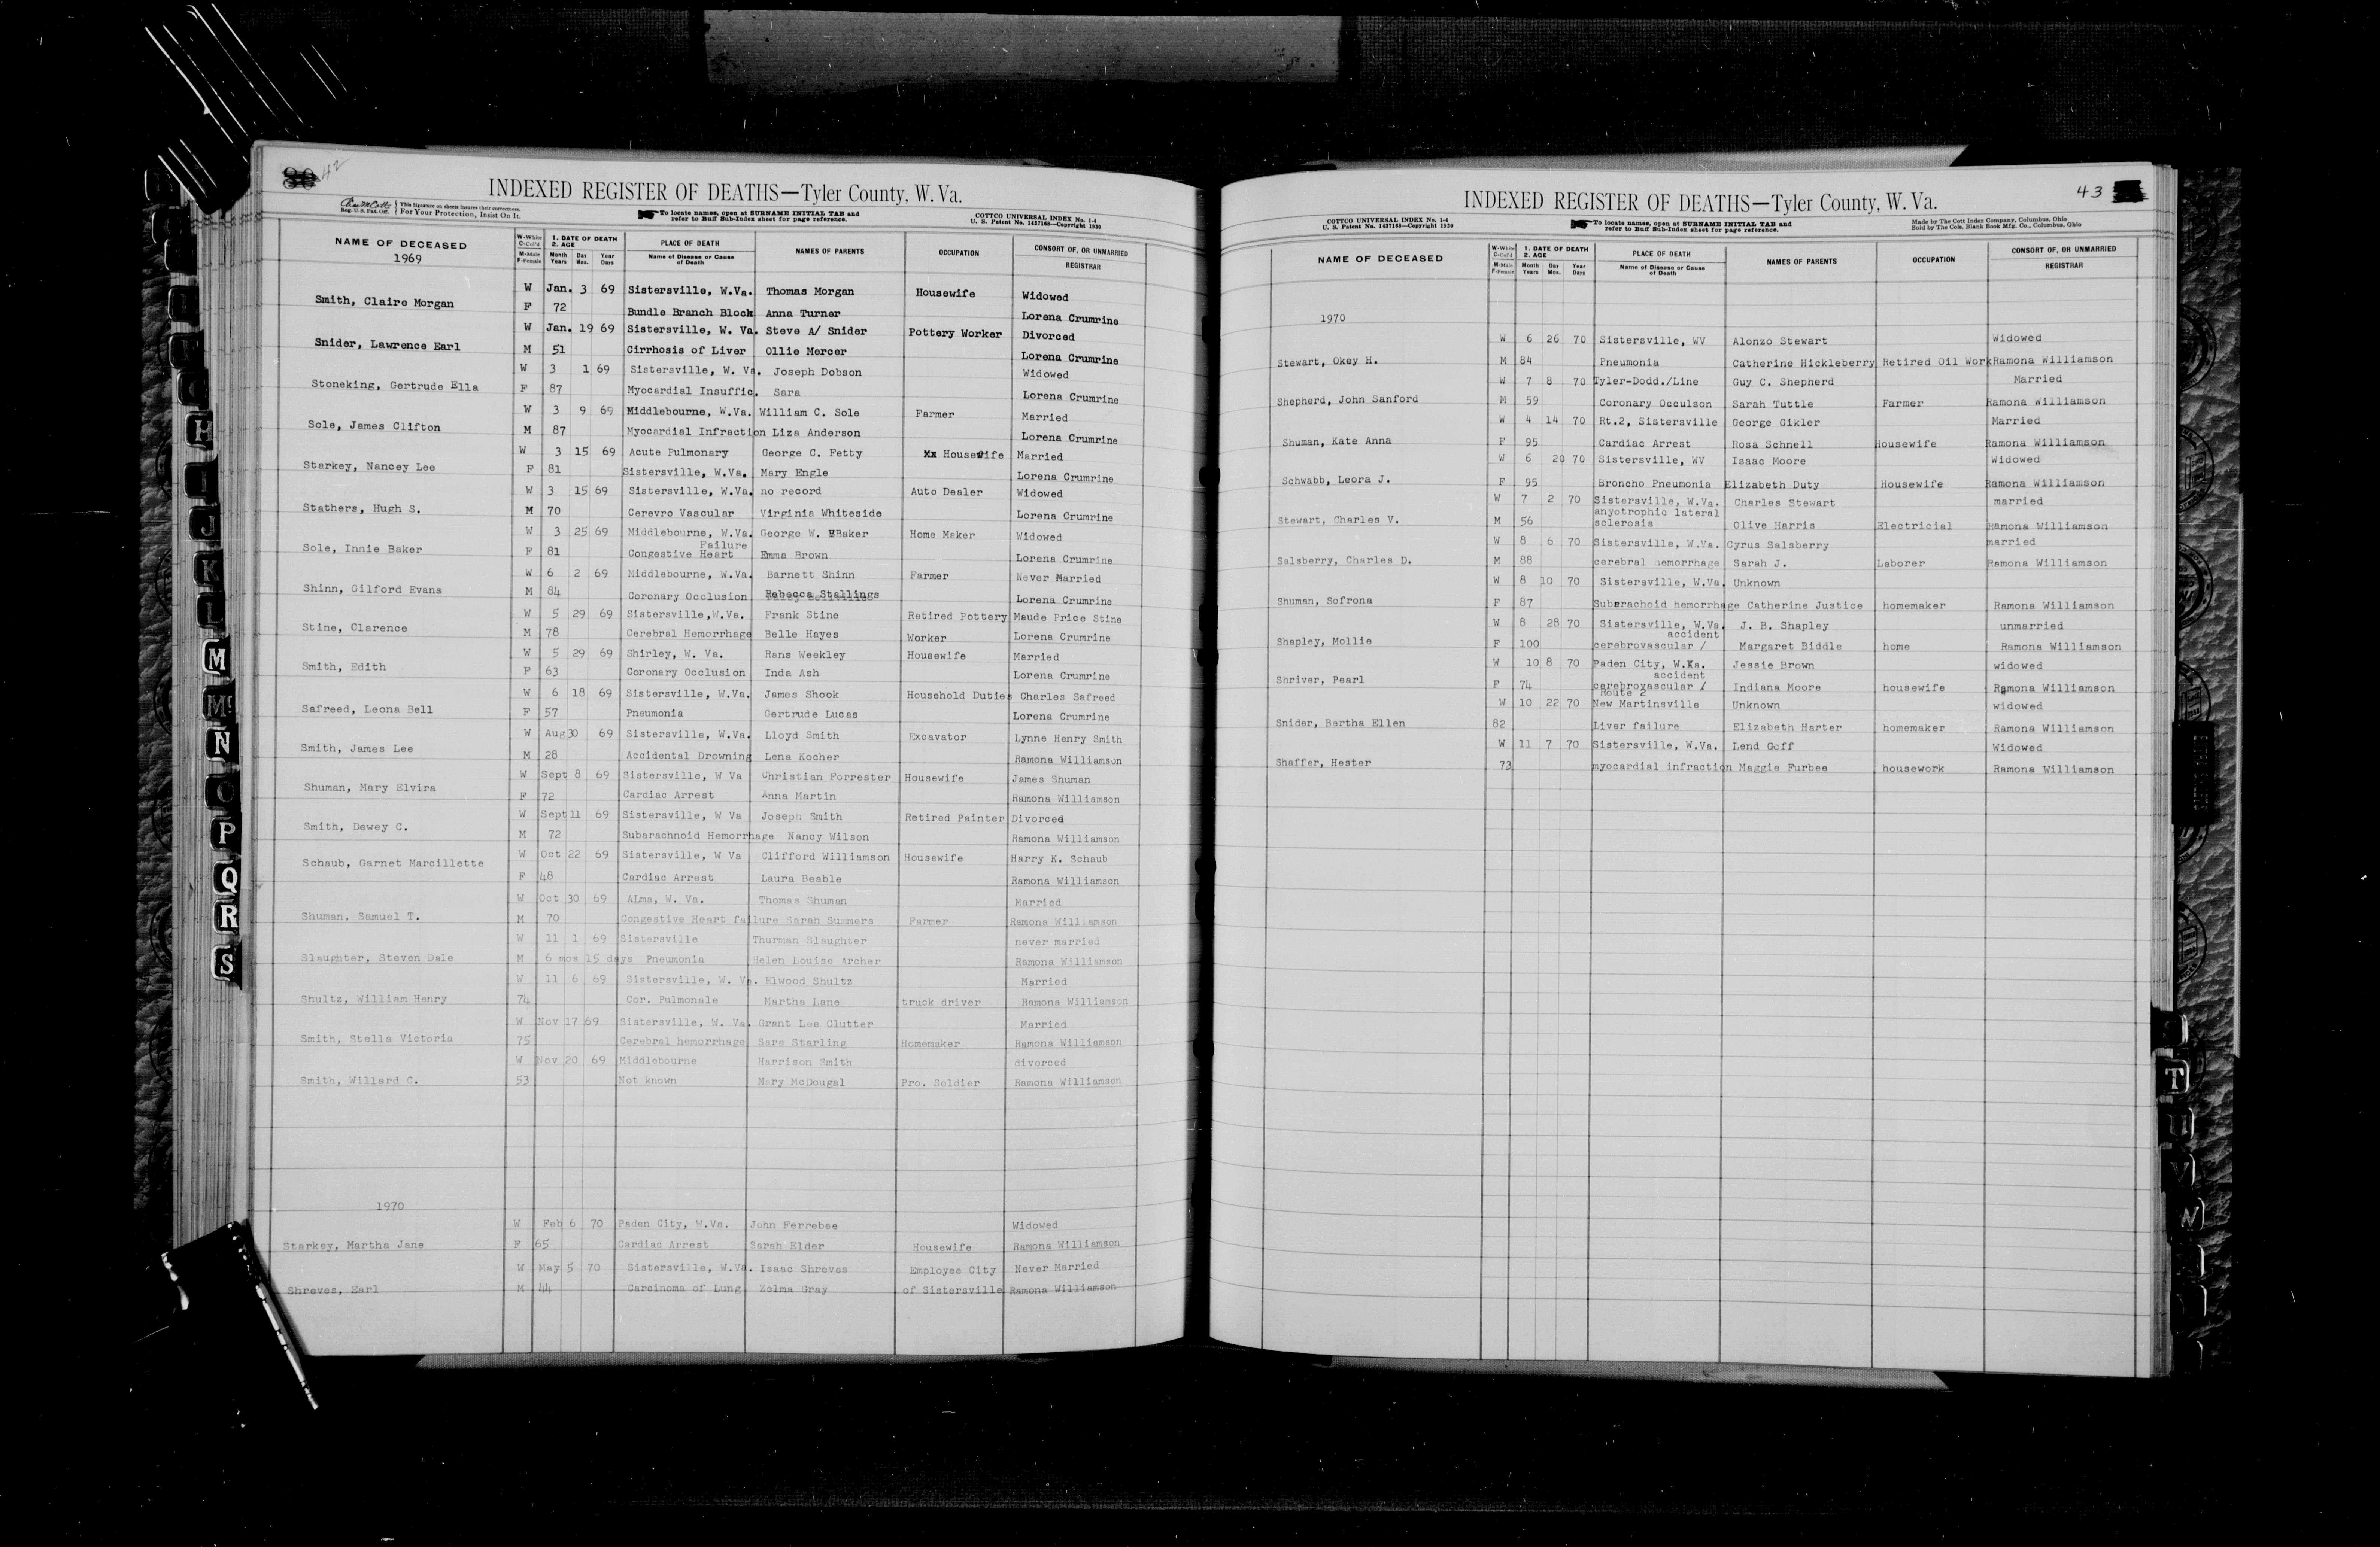 42
INDEXED REGISTER OF DEATHS—Tyler County, W. Va.
Reg. U.S. Pat. Off. This signature on sheets insures their correctness. For Your Protection, Insist On It.
To locate names, open at SURNAME INITIAL TAB and refer to Buff Sub-Index sheet for page reference.
COTTCO UNIVERSAL INDEX No. 1-4
U. S. Patent No. 1437168—Copyright 1930
NAME OF DECEASED W-White C-Col'd M-Male F-Female 1. DATE OF DEATH 2. AGE Month Years Day Mos. Year Days PLACE OF DEATH Name of Disease or Cause of Death NAMES OF PARENTS OCCUPATION CONSORT OF, OR UNMARRIED REGISTRAR
1969
W Jan. 3 69 Sistersville, W.Va. Thomas Morgan Housewife Widowed
Smith, Claire Morgan F 72 Bundle Branch Block Anna Turner Lorena Crumrine
W Jan. 19 69 Sistersville, W. Va. Steve A/ Snider Pottery Worker Divorced
Snider, Lawrence Earl M 51 Cirrhosis of Liver Ollie Mercer Lorena Crumrine
W 3 1 69 Sistersville, W. Va. Joseph Dobson Widowed
Stoneking, Gertrude Ella F 87 Myocardial Insuffic. Sara Lorena Crumrine
W 3 9 69 Middlebourne, W.Va. William C. Sole Farmer Married
Sole, James Clifton M 87 Myocardial Infraction Liza Anderson Lorena Crumrine
W 3 15 69 Acute Pulmonary George C. Fetty Housewife Married
Starkey, Nancey Lee F 81 Sistersville, W.Va. Mary Engle Lorena Crumrine
W 3 15 69 Sistersville, W.Va. no record Auto Dealer Widowed
Stathers, Hugh S. M 70 Cerevro Vascular Virginia Whiteside Lorena Crumrine
W 3 25 69 Middlebourne, W.Va. George W. Baker Home Maker Widowed
Failure
Sole, Innie Baker F 81 Congestive Heart Emma Brown Lorena Crumrine
W 6 2 69 Middlebourne, W.Va. Barnett Shinn Farmer Never Married
Shinn, Gilford Evans M 84 Coronary Occlusion Rebecca Stallings Lorena Crumrine
W 5 29 69 Sistersville,W.Va. Frank Stine Retired Pottery Maude Price Stine
Stine, Clarence M 78 Cerebral Hemorrhage Belle Hayes Worker Lorena Crumrine
W 5 29 69 Shirley, W. Va. Rans Weekley Housewife Married
Smith, Edith F 63 Coronary Occlusion Inda Ash Lorena Crumrine
W 6 18 69 Sistersville, W.Va. James Shook Household Duties Charles Safreed
Safreed, Leona Bell F 57 Pneumonia Gertrude Lucas Lorena Crumrine
W Aug 30 69 Sistersville, W.Va. Lloyd Smith Excavator Lynne Henry Smith
Smith, James Lee M 28 Accidental Drowning Lena Kocher Ramona Williamson
W Sept 8 69 Sistersville, W Va Christian Forrester Housewife James Shuman
Shuman, Mary Elvira F 72 Cardiac Arrest Anna Martin Ramona Williamson
W Sept 11 69 Sistersville, W Va Joseph Smith Retired Painter Divorced
Smith, Dewey C. M 72 Subarachnoid Hemorrhage Nancy Wilson Ramona Williamson
W Oct 22 69 Sistersville, W Va Clifford Williamson Housewife Harry K. Schaub
Schaub, Garnet Marcillette F 48 Cardiac Arrest Laura Beable Ramona Williamson
W Oct 30 69 ALma, W. Va. Thomas Shuman Married
Shuman, Samuel T. M 70 Congestive Heart failure Sarah Summers Farmer Ramona Williamson
W 11 1 69 Sistersville Thurman Slaughter never married
Slaughter, Steven Dale M 6 mos 15 days Pneumonia Helen Louise Archer Ramona Williamson
W 11 6 69 Sistersville, W. Va. Elwood Shultz Married
Shultz, William Henry 74 Cor. Pulmonale Martha Lane truck driver Ramona Williamson
W Nov 17 69 Sistersville, W. Va. Grant Lee Clutter Married
Smith, Stella Victoria 75 Cerebral hemorrhage Sara Starling Homemaker Ramona Williamson
W Nov 20 69 Middlebourne Harrison Smith divorced
Smith, Willard C. 53 Not known Mary McDougal Pro. Soldier Ramona Williamson
1970
W Feb 6 70 Paden City, W.Va. John Ferrebee Widowed
Starkey, Martha Jane F 65 Cardiac Arrest Sarah Elder Housewife Ramona Williamson
W May 5 70 Sistersville, W.Va. Isaac Shreves Employee City Never Married
Shreves, Earl M 44 Carcinoma of Lung Zelma Gray of Sistersville Ramona Williamson
H
I
J
K
L
M
Mc
N
O
P
Q
R
S
43
INDEXED REGISTER OF DEATHS—Tyler County, W. Va.
COTTCO UNIVERSAL INDEX No. 1-4
U. S. Patent No. 1437168—Copyright 1930
To locate names, open at SURNAME INITIAL TAB and refer to Buff Sub-Index sheet for page reference.
Made by The Cott Index Company, Columbus, Ohio
Sold by The Cols. Blank Book Mfg. Co., Columbus, Ohio
NAME OF DECEASED W-White C-Col'd M-Male F-Female 1. DATE OF DEATH 2. AGE Month Years Day Mos. Year Days PLACE OF DEATH Name of Disease or Cause of Death NAMES OF PARENTS OCCUPATION CONSORT OF, OR UNMARRIED REGISTRAR
1970
W 6 26 70 Sistersville, WV Alonzo Stewart Widowed
Stewart, Okey H. M 84 Pneumonia Catherine Hickleberry Retired Oil Work Ramona Williamson
W 7 8 70 Tyler-Dodd./Line Guy C. Shepherd Married
Shepherd, John Sanford M 59 Coronary Occulson Sarah Tuttle Farmer Ramona Williamson
W 4 14 70 Rt.2, Sistersville George Gikler Married
Shuman, Kate Anna F 95 Cardiac Arrest Rosa Schnell Housewife Ramona Williamson
W 6 20 70 Sistersville, WV Isaac Moore Widowed
Schwabb, Leora J. F 95 Broncho Pneumonia Elizabeth Duty Housewife Ramona Williamson
W 7 2 70 Sistersville, W.Va. Charles Stewart married
anyotrophic lateral
Stewart, Charles V. M 56 sclerosis Olive Harris Electricial Ramona Williamson
W 8 6 70 Sistersville, W.Va. Cyrus Salsberry married
Salsberry, Charles D. M 88 cerebral hemorrhage Sarah J. Laborer Ramona Williamson
W 8 10 70 Sistersville, W.Va. Unknown
Shuman, Sofrona F 87 Subarachoid hemorrhage Catherine Justice homemaker Ramona Williamson
W 8 28 70 Sistersville, W.Va. J. B. Shapley unmarried
accident
Shapley, Mollie F 100 cerebrovascular / Margaret Biddle home Ramona Williamson
W 10 8 70 Paden City, W.Va. Jessie Brown widowed
accident
Shriver, Pearl F 74 cerebrovascular / Indiana Moore housewife Ramona Williamson
Route 2
W 10 22 70 New Martinsville Unknown widowed
Snider, Bertha Ellen 82 Liver failure Elizabeth Harter homemaker Ramona Williamson
W 11 7 70 Sistersville, W.Va. Lend Goff Widowed
Shaffer, Hester 73 myocardial infraction Maggie Furbee housework Ramona Williamson
T
U
V
W